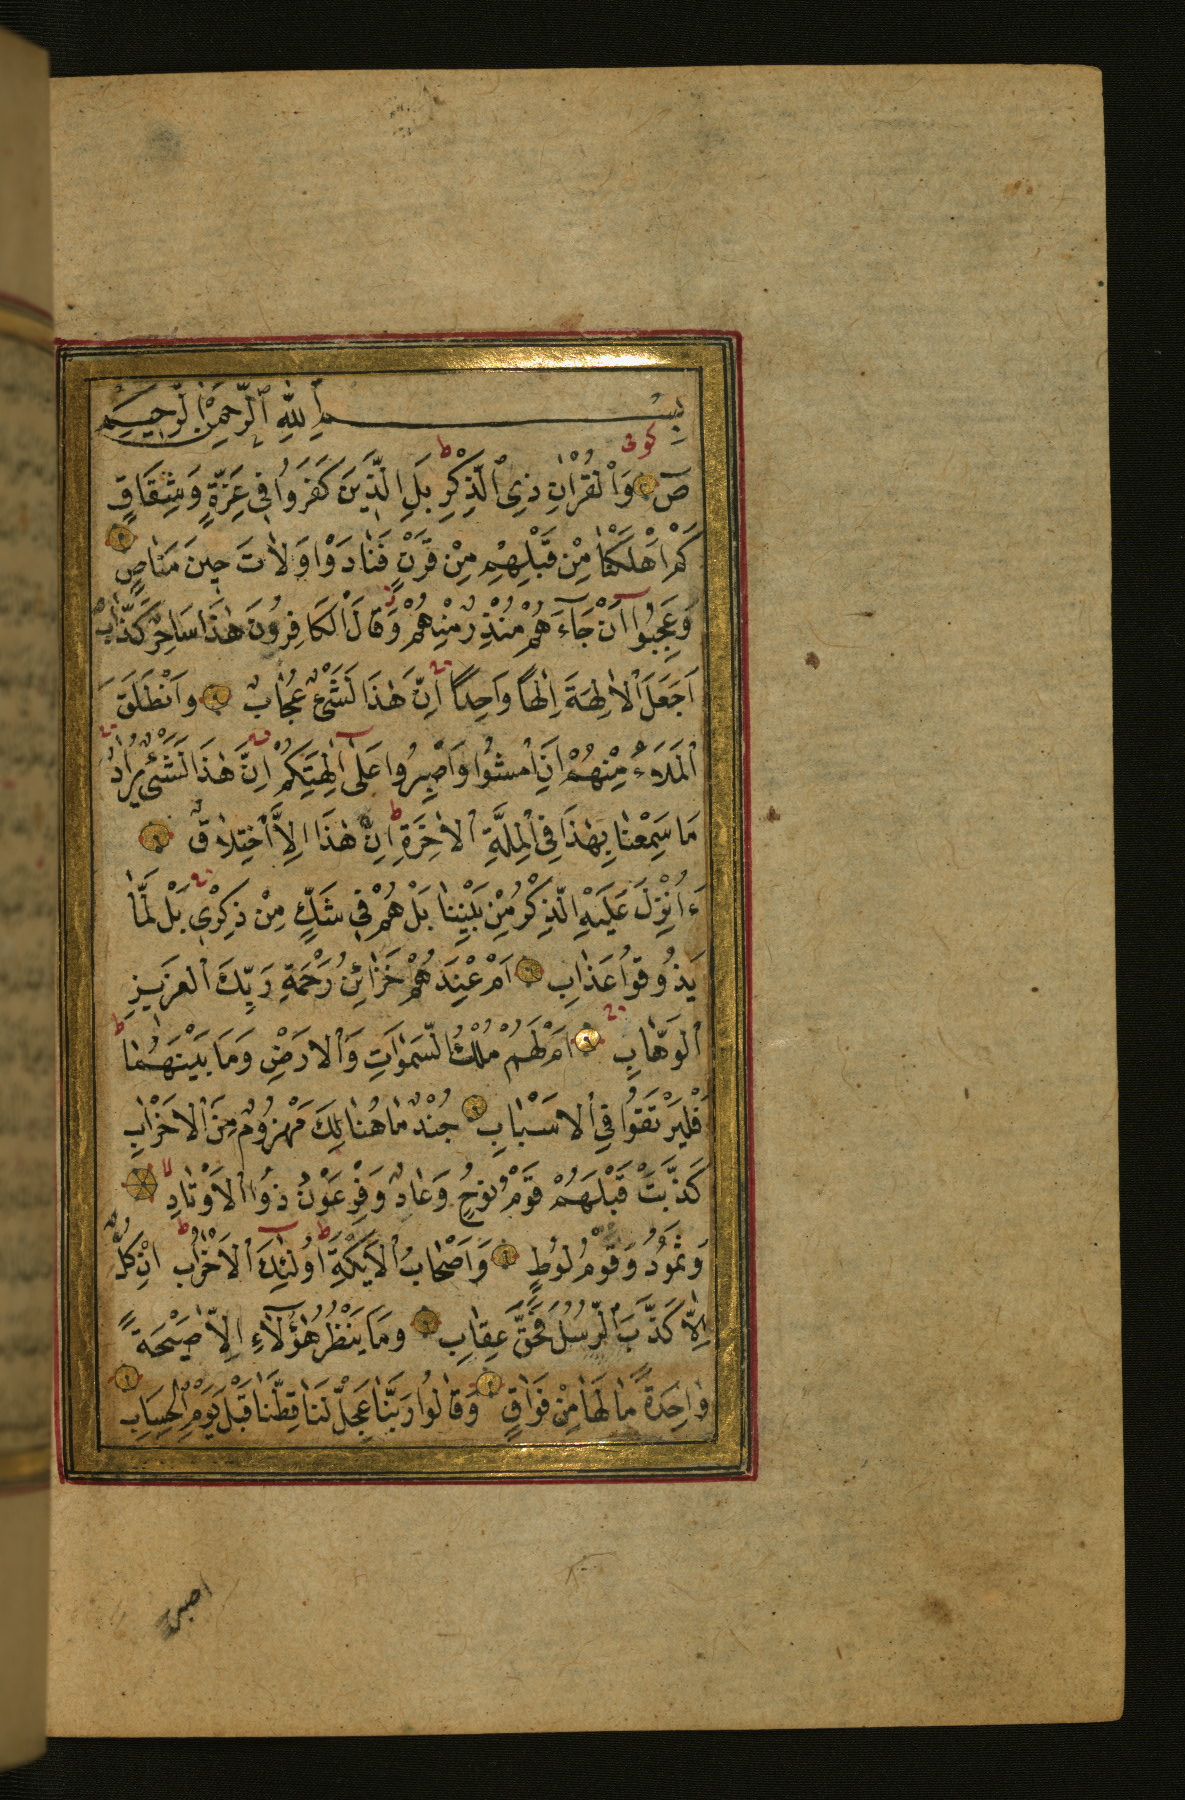 بِسْمِ اللّٰهِ الرَّحْمٰنِ الرَّحِيمِ
كوفى
صٓ وَالْقُرْاٰنِ ذِى الذِّكْرِ بَلِ الَّذِينَ كَفَرُوا فِى عِزَّةٍ وَشِقَاقٍ
كَمْ اَهْلَكْنَا مِنْ قَبْلِهِمْ مِنْ قَرْنٍ فَنَادَوْا وَلَاتَ حِينَ مَنَاصٍ
وَعَجِبُوا اَنْ جَاءَهُمْ مُنْذِرٌ مِنْهُمْ وَقَالَ الْكَافِرُونَ هٰذَا سَاحِرٌ كَذَّابٌ
اَجَعَلَ الْاٰلِهَةَ اِلٰهًا وَاحِدًا اِنَّ هٰذَا لَشَىْءٌ عُجَابٌ وَانْطَلَقَ
الْمَلَاُ مِنْهُمْ اَنِ امْشُوا وَاصْبِرُوا عَلٰٓى اٰلِهَتِكُمْ اِنَّ هٰذَا لَشَىْءٌ يُرَادُ
مَا سَمِعْنَا بِهٰذَا فِى الْمِلَّةِ الْاٰخِرَةِ اِنْ هٰذَا اِلَّا اخْتِلَاقٌ
ءَاُنْزِلَ عَلَيْهِ الذِّكْرُ مِنْ بَيْنِنَا بَلْ هُمْ فِى شَكٍّ مِنْ ذِكْرِى بَلْ لَمَّا
يَذُوقُوا عَذَابِ اَمْ عِنْدَهُمْ خَزَائِنُ رَحْمَةِ رَبِّكَ الْعَزِيزِ
الْوَهَّابِ اَمْ لَهُمْ مُلْكُ السَّمٰوَاتِ وَالْاَرْضِ وَمَا بَيْنَهُمَا
فَلْيَرْتَقُوا فِى الْاَسْبَابِ جُنْدٌ مَا هُنَالِكَ مَهْزُومٌ مِنَ الْاَحْزَابِ
كَذَّبَتْ قَبْلَهُمْ قَوْمُ نُوحٍ وَعَادٌ وَفِرْعَوْنُ ذُو الْاَوْتَادِ
وَثَمُودُ وَقَوْمُ لُوطٍ وَاَصْحَابُ الْاَيْكَةِ اُولٰٓئِكَ الْاَحْزَابُ اِنْ كُلٌّ
اِلَّا كَذَّبَ الرُّسُلَ فَحَقَّ عِقَابِ وَمَا يَنْظُرُ هٰٓؤُلَاءِ اِلَّا صَيْحَةً
وَاحِدَةً مَا لَهَا مِنْ فَوَاقٍ وَقَالُوا رَبَّنَا عَجِّلْ لَنَا قِطَّنَا قَبْلَ يَوْمِ الْحِسَابِ
اصبر